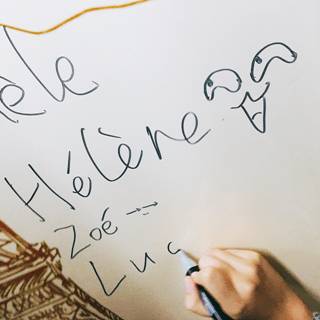 èle
Hélène
Zoé
Luc